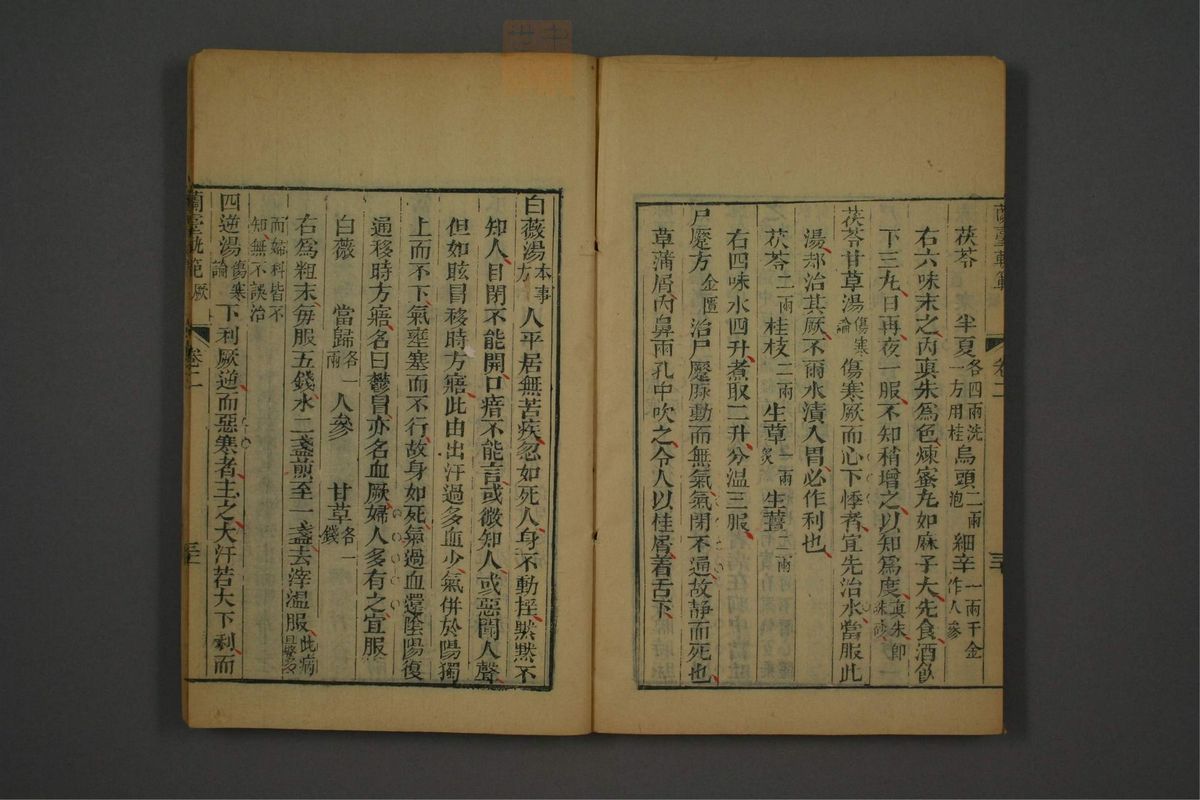 蘭臺軌範 卷二 三十
茯苓 半夏各四兩洗一方用桂 烏頭二兩泡 細辛一兩千金作人參
右六味末之內眞朱爲色煉蜜丸如麻子大先食酒飲
下三丸日再夜一服不知稍增之以知爲度眞朱卽朱砂
茯苓甘草湯傷寒論 傷寒厥而心下悸者宜先治水當服此
湯却治其厥不爾水漬入胃必作利也
茯苓二兩 桂枝二兩 生草一兩炙 生薑二兩
右四味水四升煮取二升分溫三服
尸蹷方金匱 治尸蹷脉動而無氣氣閉不通故靜而死也
草蒲屑內鼻兩孔中吹之令人以桂屑着舌下
白薇湯本事方 人平居無苦疾忽如死人身不動揺默默不
知人目閉不能開口瘖不能言或微知人或惡聞人聲
但如眩冒移時方寤此由出汗過多血少氣併於陽獨
上而不下氣壅塞而不行故身如死氣過血還陰陽復
通移時方寤名曰鬱冒亦名血厥婦人多有之宜服
白薇 當歸各一兩 人參 甘草各一錢
右爲粗末每服五錢水二盞煎至一盞去滓溫服此病
而婦科皆不知無不誤治
四逆湯傷寒論 下利厥逆而惡寒者主之大汗若大下利而
蘭臺軌範 厥 卷二 三十